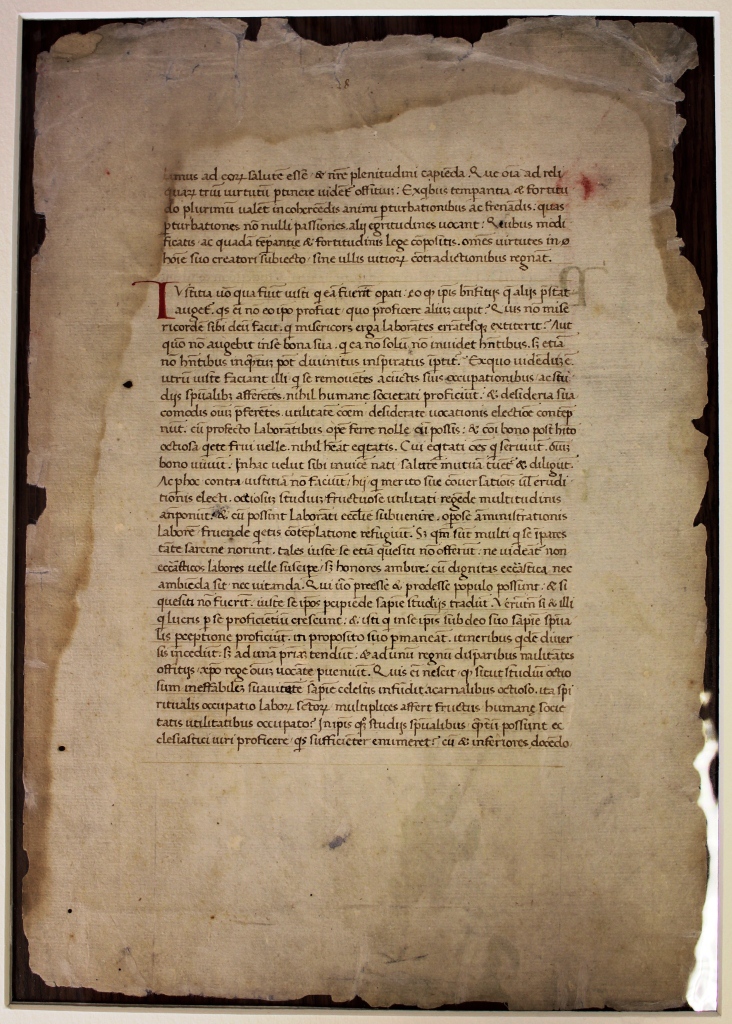 ad coꝝ salute esse & nr̄e plenitudini capiēda Que oīa ad reli
quaꝝ triū virtutū ꝑtinere videt̄ offitiū: Exqībus temp̄antia & fortitu
do plurimū valet incohercēdis animi ꝑturbationibus ac frenādis: quas
ꝑturbationes nō nulli passiones alij egritudines vocant: Quibus modi
ficatis ac quadā tēpantie & fortitudinis lege cōpositis, om̄es virtutes in
hoīe suo creatori subiecto sine ullis vitioꝝ cōtradictionibus regnāt.
IVstitia vō qua fuit eā fuerit alijs
auget. qs ei nō eo ipo proficit quo proficere aliū cupit? Quis nō mise
ricorde sibi deū facit, q misericors erga laborātes errātesq extiterit? Aut
quō nō augebit inse bona sua, q ea nō solū nō invidet hn̄tibus, sꝫ etiā
nō hn̄tibus pot divinitus inspiratus Exquo vidēdū ē.
utrū iuste faciant illi q se removētes acūctis suis occupationibus ac stu
dijs spūalibꝫ afferētes, nihil humane societati proficiūt: & desideria sua
comodis oīuꝫ p̄ferētes, utilitatē coēm desiderate vocationis electiōe cōtēp
nūt, cū profecto Laborātibus opē ferre nolle cū possīt: & cōi bono
octiosa qete frui velle, nihil hēat eqtatis. Cui eqtati oēs q serviūt, oīuꝫ
bono vivūt. Inhac velut sibi invicē nati salutē mutuā & diligūt.
Ac phoc contra iustitiā nō faciūt: hij q merito sue cōversatiōis erudi
tionis electi, octiosuꝫ studiuꝫ fructuose utilitati regēde multitudinis
anponūt. & cū possint Laborāti ecclīe subvenire, opōse amīnistrationis
Laborē fruēde qetis cōtēplatione refugiūt. Sꝫ qm̄ sūt multi q se īpares
tāte sarcine norunt, tales iuste se etiā quesiti nō offerūt: ne videāt non
eccāsticos labores velle suscipe sꝫ honores ambire: cū dignitas eccāstica nec
ambiēda sit nec vitanda. Qui vō preesse & prodesse populo possūnt: & si
quesiti nō fuerīt, iuste se ipos pcipiēde sapīe studijs tradūt. Verūtn̄ si & illi
q lucris p se proficiētiū crescunt: & isti q inse ipis sub deo suo sapīe spūa
lis pceptione proficiūt, in proposito suo pmaneāt, itineribus qde diver
sis incedūt: sꝫ ad unā pria tendūt: & ad unū regnū disparibus militātes
offitijs xpo rege oīuꝫ vocāte pveniūt. Quis ei nescit q sicut studiū octio
sum ineffabilēꝫ suavitatē sapīe celestis infūdit acarnalibus octioso, ita spi
ritualis occupatio Laboꝝ setoꝝ multiplices affert fructus humane socie
tatis utilitatibus occupato? Inipis studijs spūalibus, possūnt ec
clesiastici viri proficere qs sufficiēter enumeret? cū & inferiores docēdo